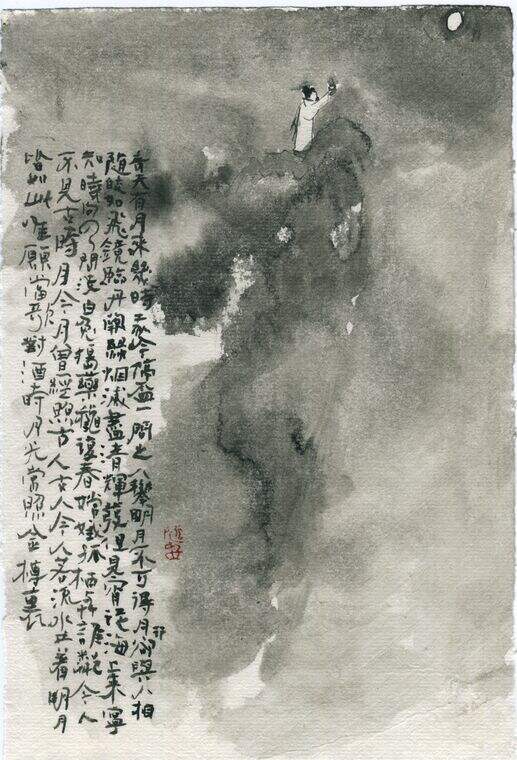 青天有月來幾時我今停盃一問之人攀明月不可得月行卻與人相
隨皎如飛鏡臨丹闕綠烟滅盡青輝發但見宵從海上來寧
知曉向雲間沒白兔搗藥龝復春嫦娥孤栖與誰鄰今人
不見古時月今月曾經照古人古人今人若流水共看明月
皆如此唯願當歌對酒時月光常照金樽裏